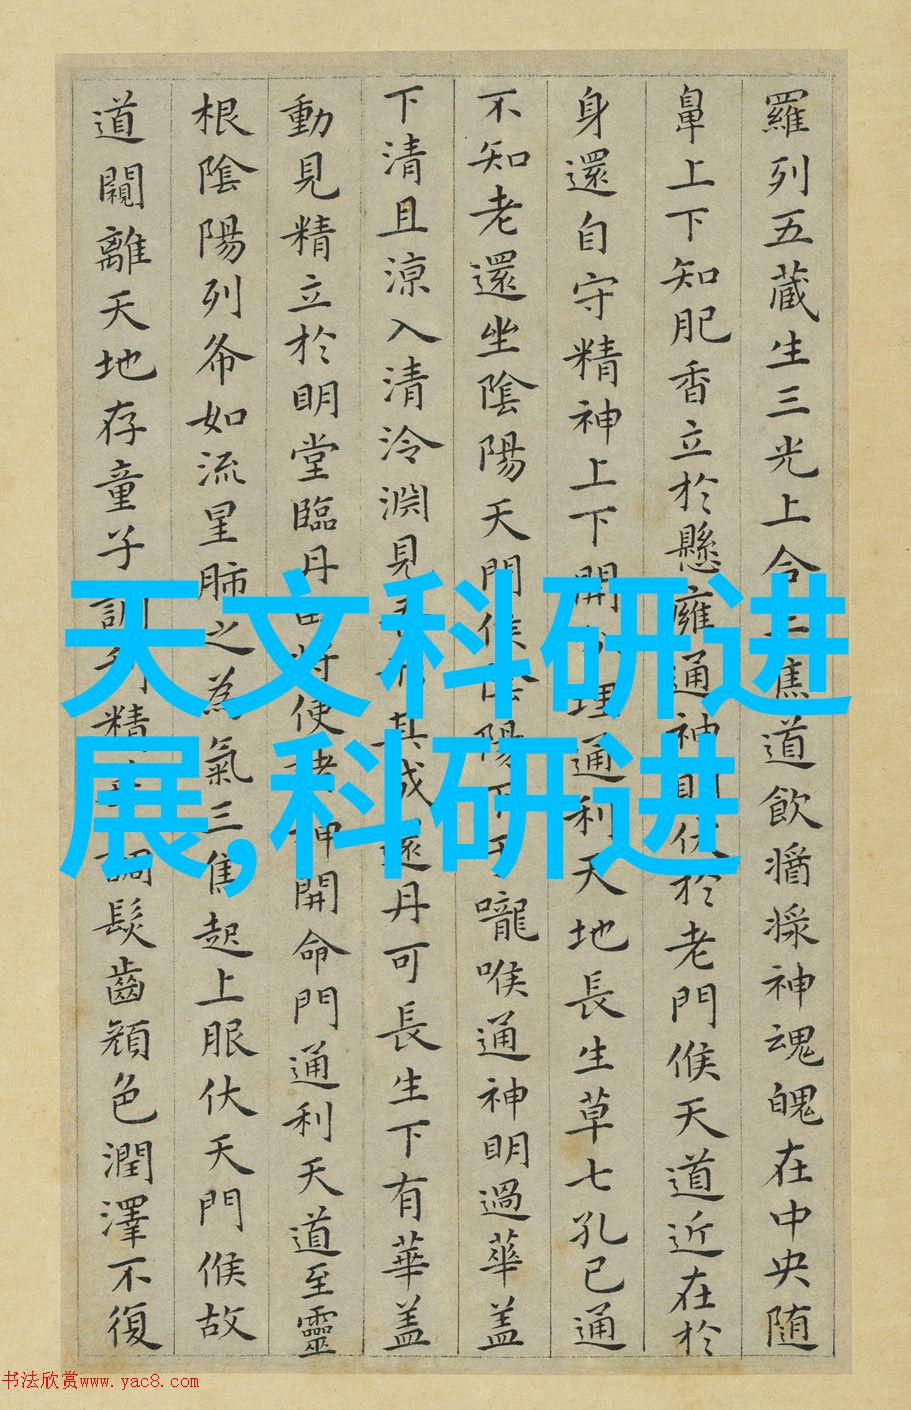 羅列五藏生三光上合三焦道飲醬漿神魂魄在中央随
鼻上下知肥香立於懸雍通神明伏於老門候天道近在於
身還自守精神上下開分理通利天地長生草七孔已通
不知老還坐陰陽天門候陰陽下于嚨喉通神明過華盖
下清且涼入清泠淵見吾形其成還丹可長生下有華盖
動見精立於明堂臨丹田將使諸神開命門通利天道至靈
根陰陽列布如流星肺之為氣三焦起上服伏天門候故
道闚離天地存童子調利精華調髮齒顏色潤澤不復
天文科研进
展,科研进
书法欣赏www.yac8.com